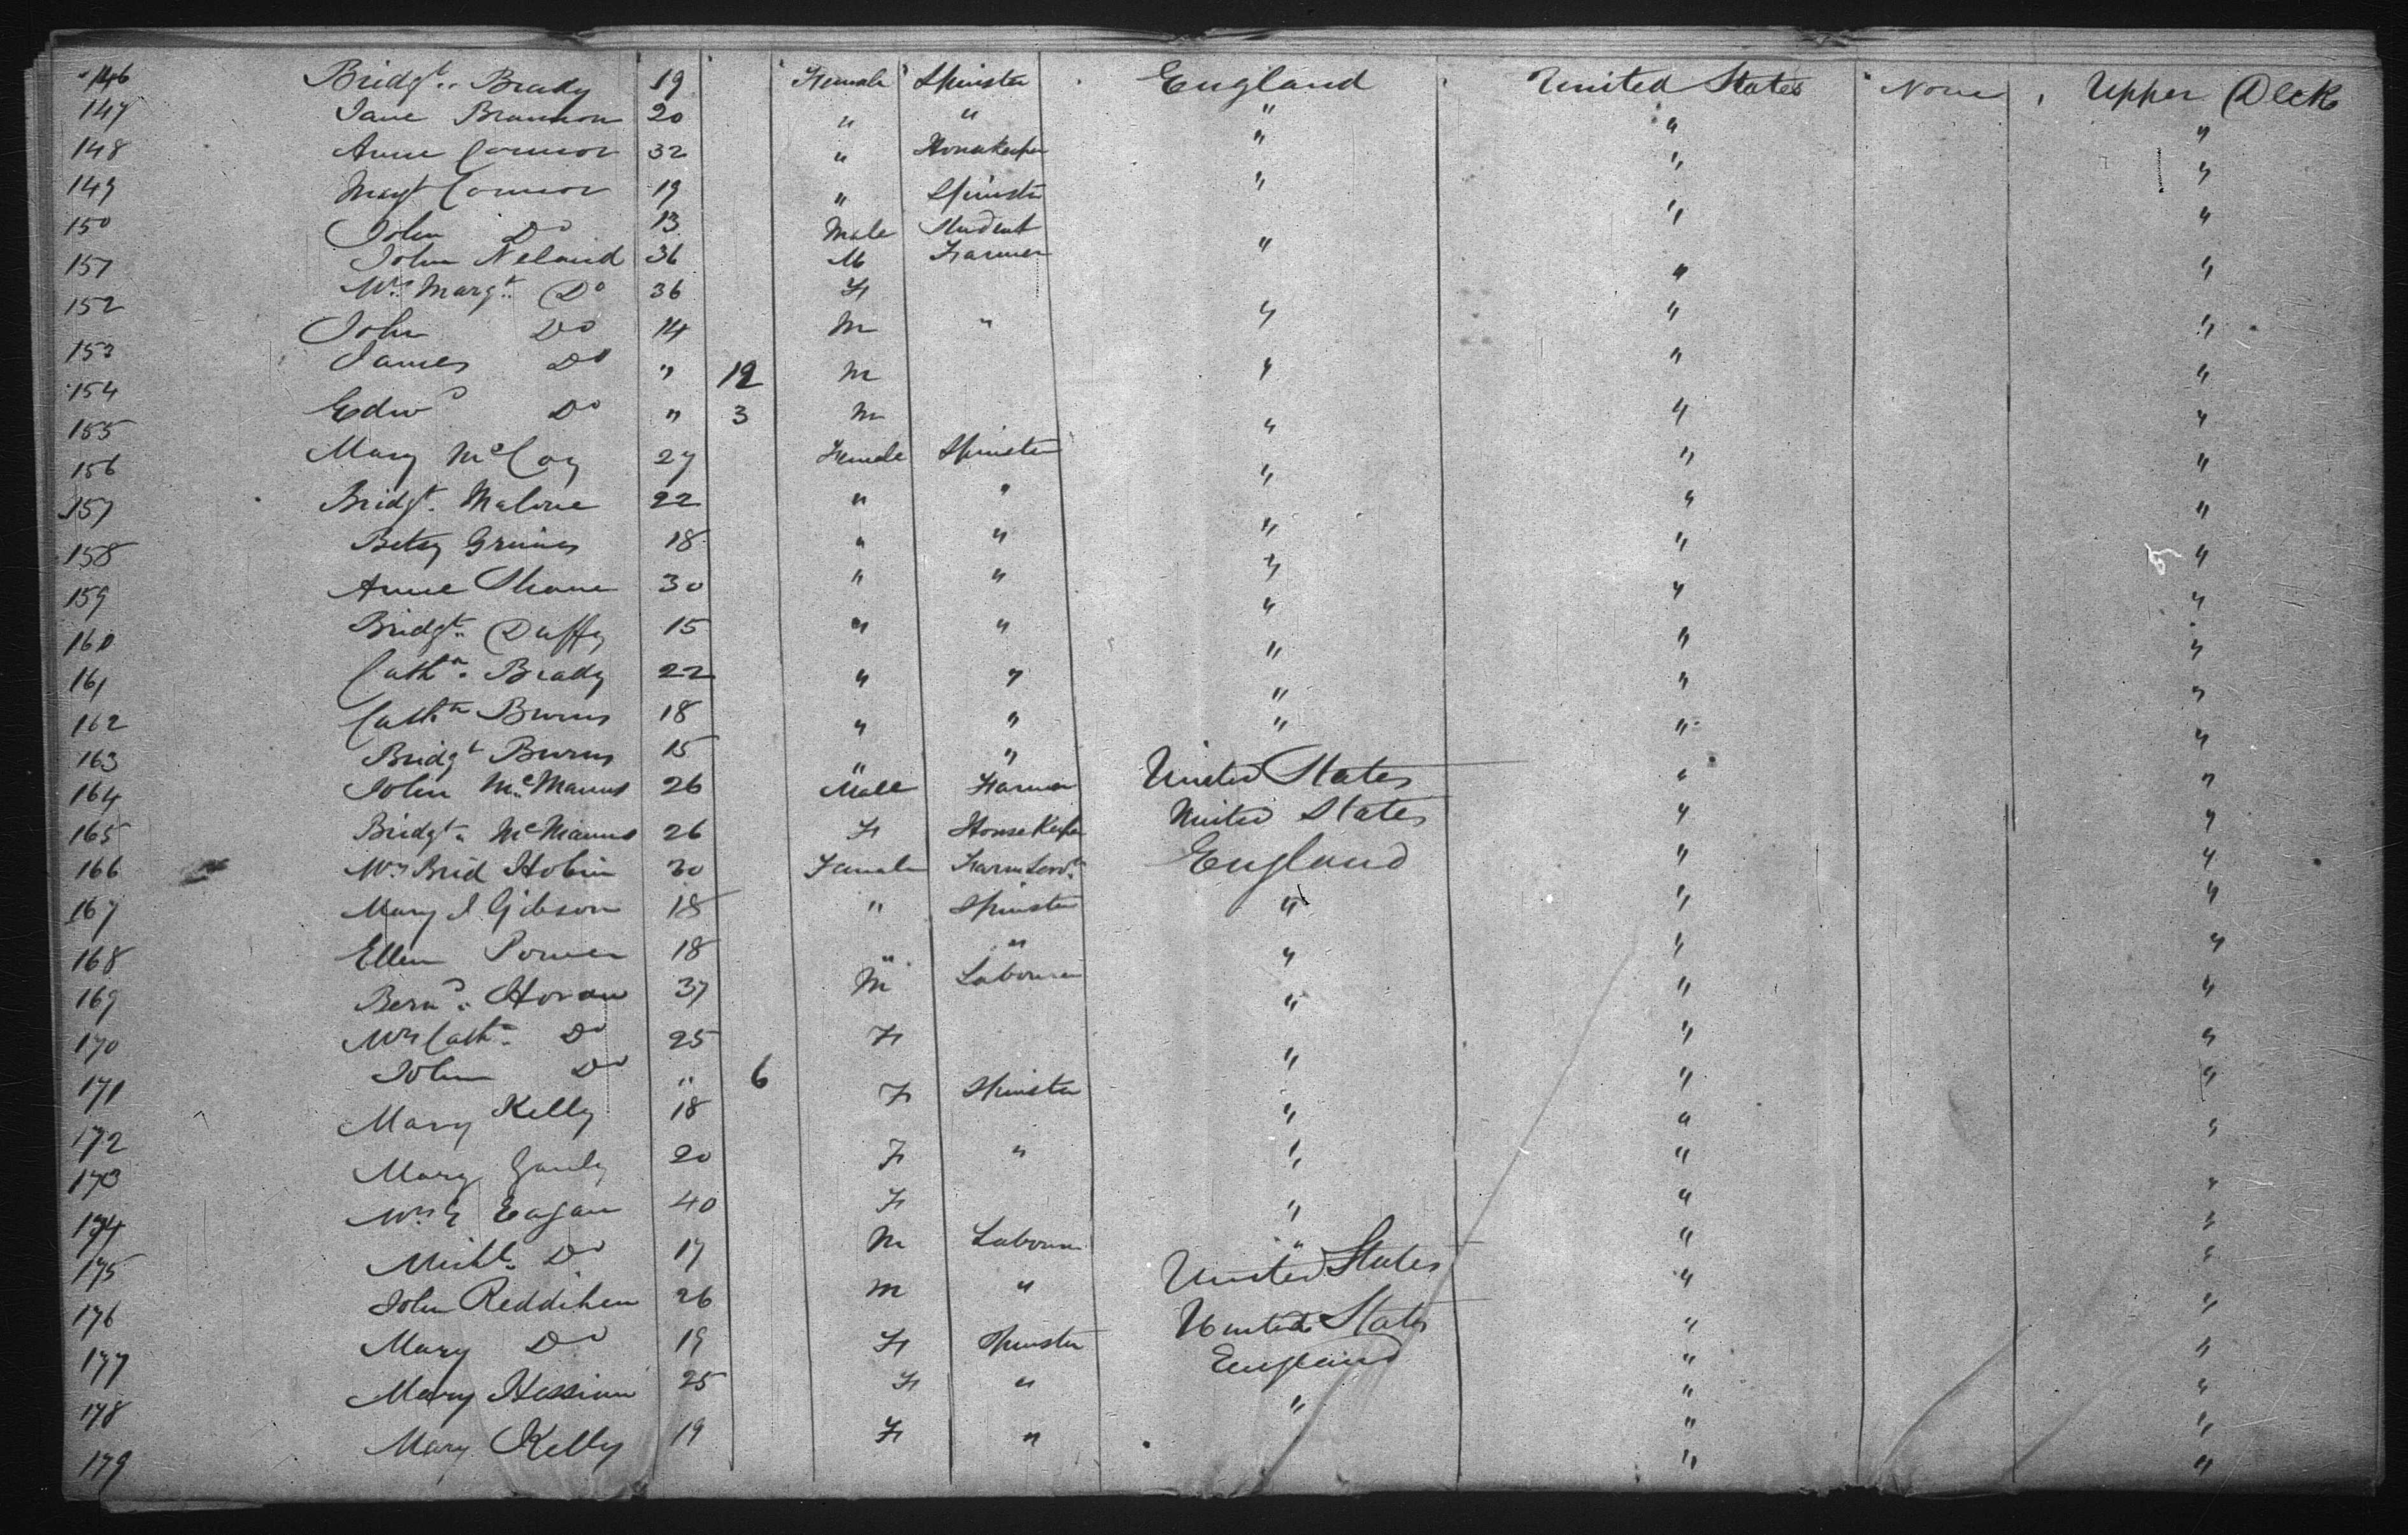 146 Bridgt. Brady 19 Female Spinster England United States None Upper Deck
147 Jane Brannon 20 " " " " "
148 Anne Connor 32 " Housekeeper " " "
149 Margt Connor 19 " Spinster " " "
150 John Do 13 Male Student " "
151 John Neland 36 M Farmer " " "
152 Mrs. Margt. Do 36 F "
153 John Do 14 M " " " "
154 James Do " 12 M " " "
155 Edwd Do " 3 M " " "
156 Mary McCoy 27 Female Spinster " " "
157 Bridgt. Malone 22 " " " " "
158 Betsy Grimes 18 " " " " "
159 Anne Shane 30 " " " " "
160 Bridgt. Duffy 15 " " " " "
161 Cathn. Brady 22 " " " " "
162 Cathn Burns 18 " " " " "
163 Bridgt Burns 15 " " " " "
164 John McManus 26 Male Farmer United States " "
165 Bridgt. McManus 26 F HouseKeeper United States " "
166 Mrs Brid Hobin 30 Female Farm Servt. England " "
167 Mary J Gibson 18 " Spinster " " "
168 Ellen Power 18 " " " " "
169 Bernd. Horan 37 M Labourer " " "
170 Mrs Cathn. Do 25 F " " "
171 John Do " 6 " "
172 Mary Kelly 18 F Spinster " " "
173 Mary Ganly 20 F " " " "
174 Mrs Eagan 40 F " " "
175 Michl. Do 17 M Labourer " " "
176 John Reddihen 26 M " United States " "
177 Mary Do 19 F Spinster United States " "
178 Mary Hession 25 F " England " "
179 Mary Kelly 19 F " " " "